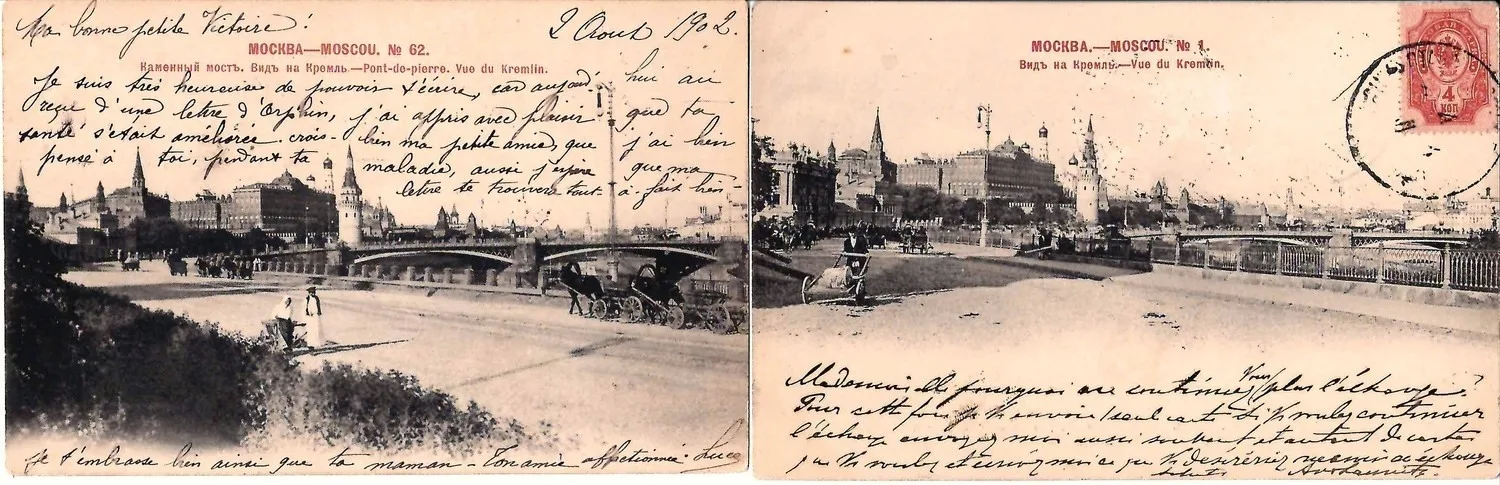 Ma bonne petite Victoire !
2 Aout 1902.
МОСКВА—MOSCOU. № 62.
Каменный мостъ. Видъ на Кремль.—Pont-de-pierre. Vue du Kremlin.
Je suis très heureuse de pouvoir t'écrire, car aujourd'hui au
reçu d'une lettre d'Orphin, j'ai appris avec plaisir que ta
santé s'était améliorée. crois-bien ma petite amie, que j'ai bien
pensé à toi, pendant ta maladie, aussi j'espère que ma
lettre te trouvera tout-à-fait bien-
Je t'embrasse bien ainsi que ta maman - Ton amie affectionnée Luce
МОСКВА.—MOSCOU. № 1.
Видъ на Кремль.—Vue du Kremlin.
4
КОП
Mademoiselle pourquoi ne continuez Vous plus l'échange?
Pour cette fois je V. envoie 1 seul carte si V. voulez continuer
l'échange envoyez moi aussi souvent et autant de cartes
que V. voulez et écrivez moi ce que V. désirériez